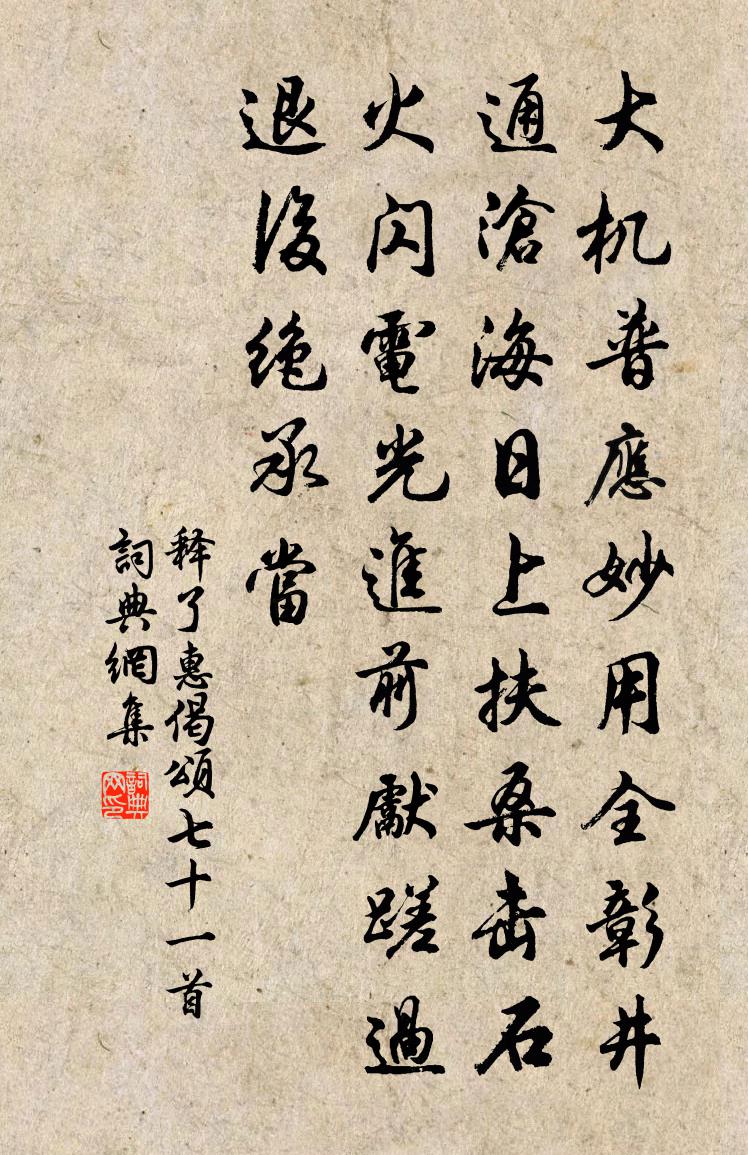 大机普應妙用全彰井
通滄海日上扶桑击石
火闪電光進前獻蹉過
退後绝承當
释了惠偈頌七十一首
詞典網集
詞典网印